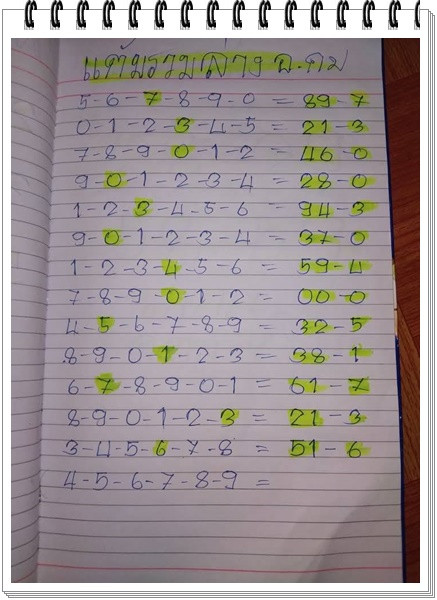 แต้มรวมล่าง อ.คม
5-6-7-8-9-0 = 89-7
0-1-2-3-4-5 = 21-3
7-8-9-0-1-2 = 46-0
9-0-1-2-3-4 = 28-0
1-2-3-4-5-6 = 94-3
9-0-1-2-3-4 = 37-0
1-2-3-4-5-6 = 59-4
7-8-9-0-1-2 = 00-0
4-5-6-7-8-9 = 32-5
8-9-0-1-2-3 = 38-1
6-7-8-9-0-1 = 61-7
8-9-0-1-2-3 = 21-3
3-4-5-6-7-8 = 51-6
4-5-6-7-8-9 =